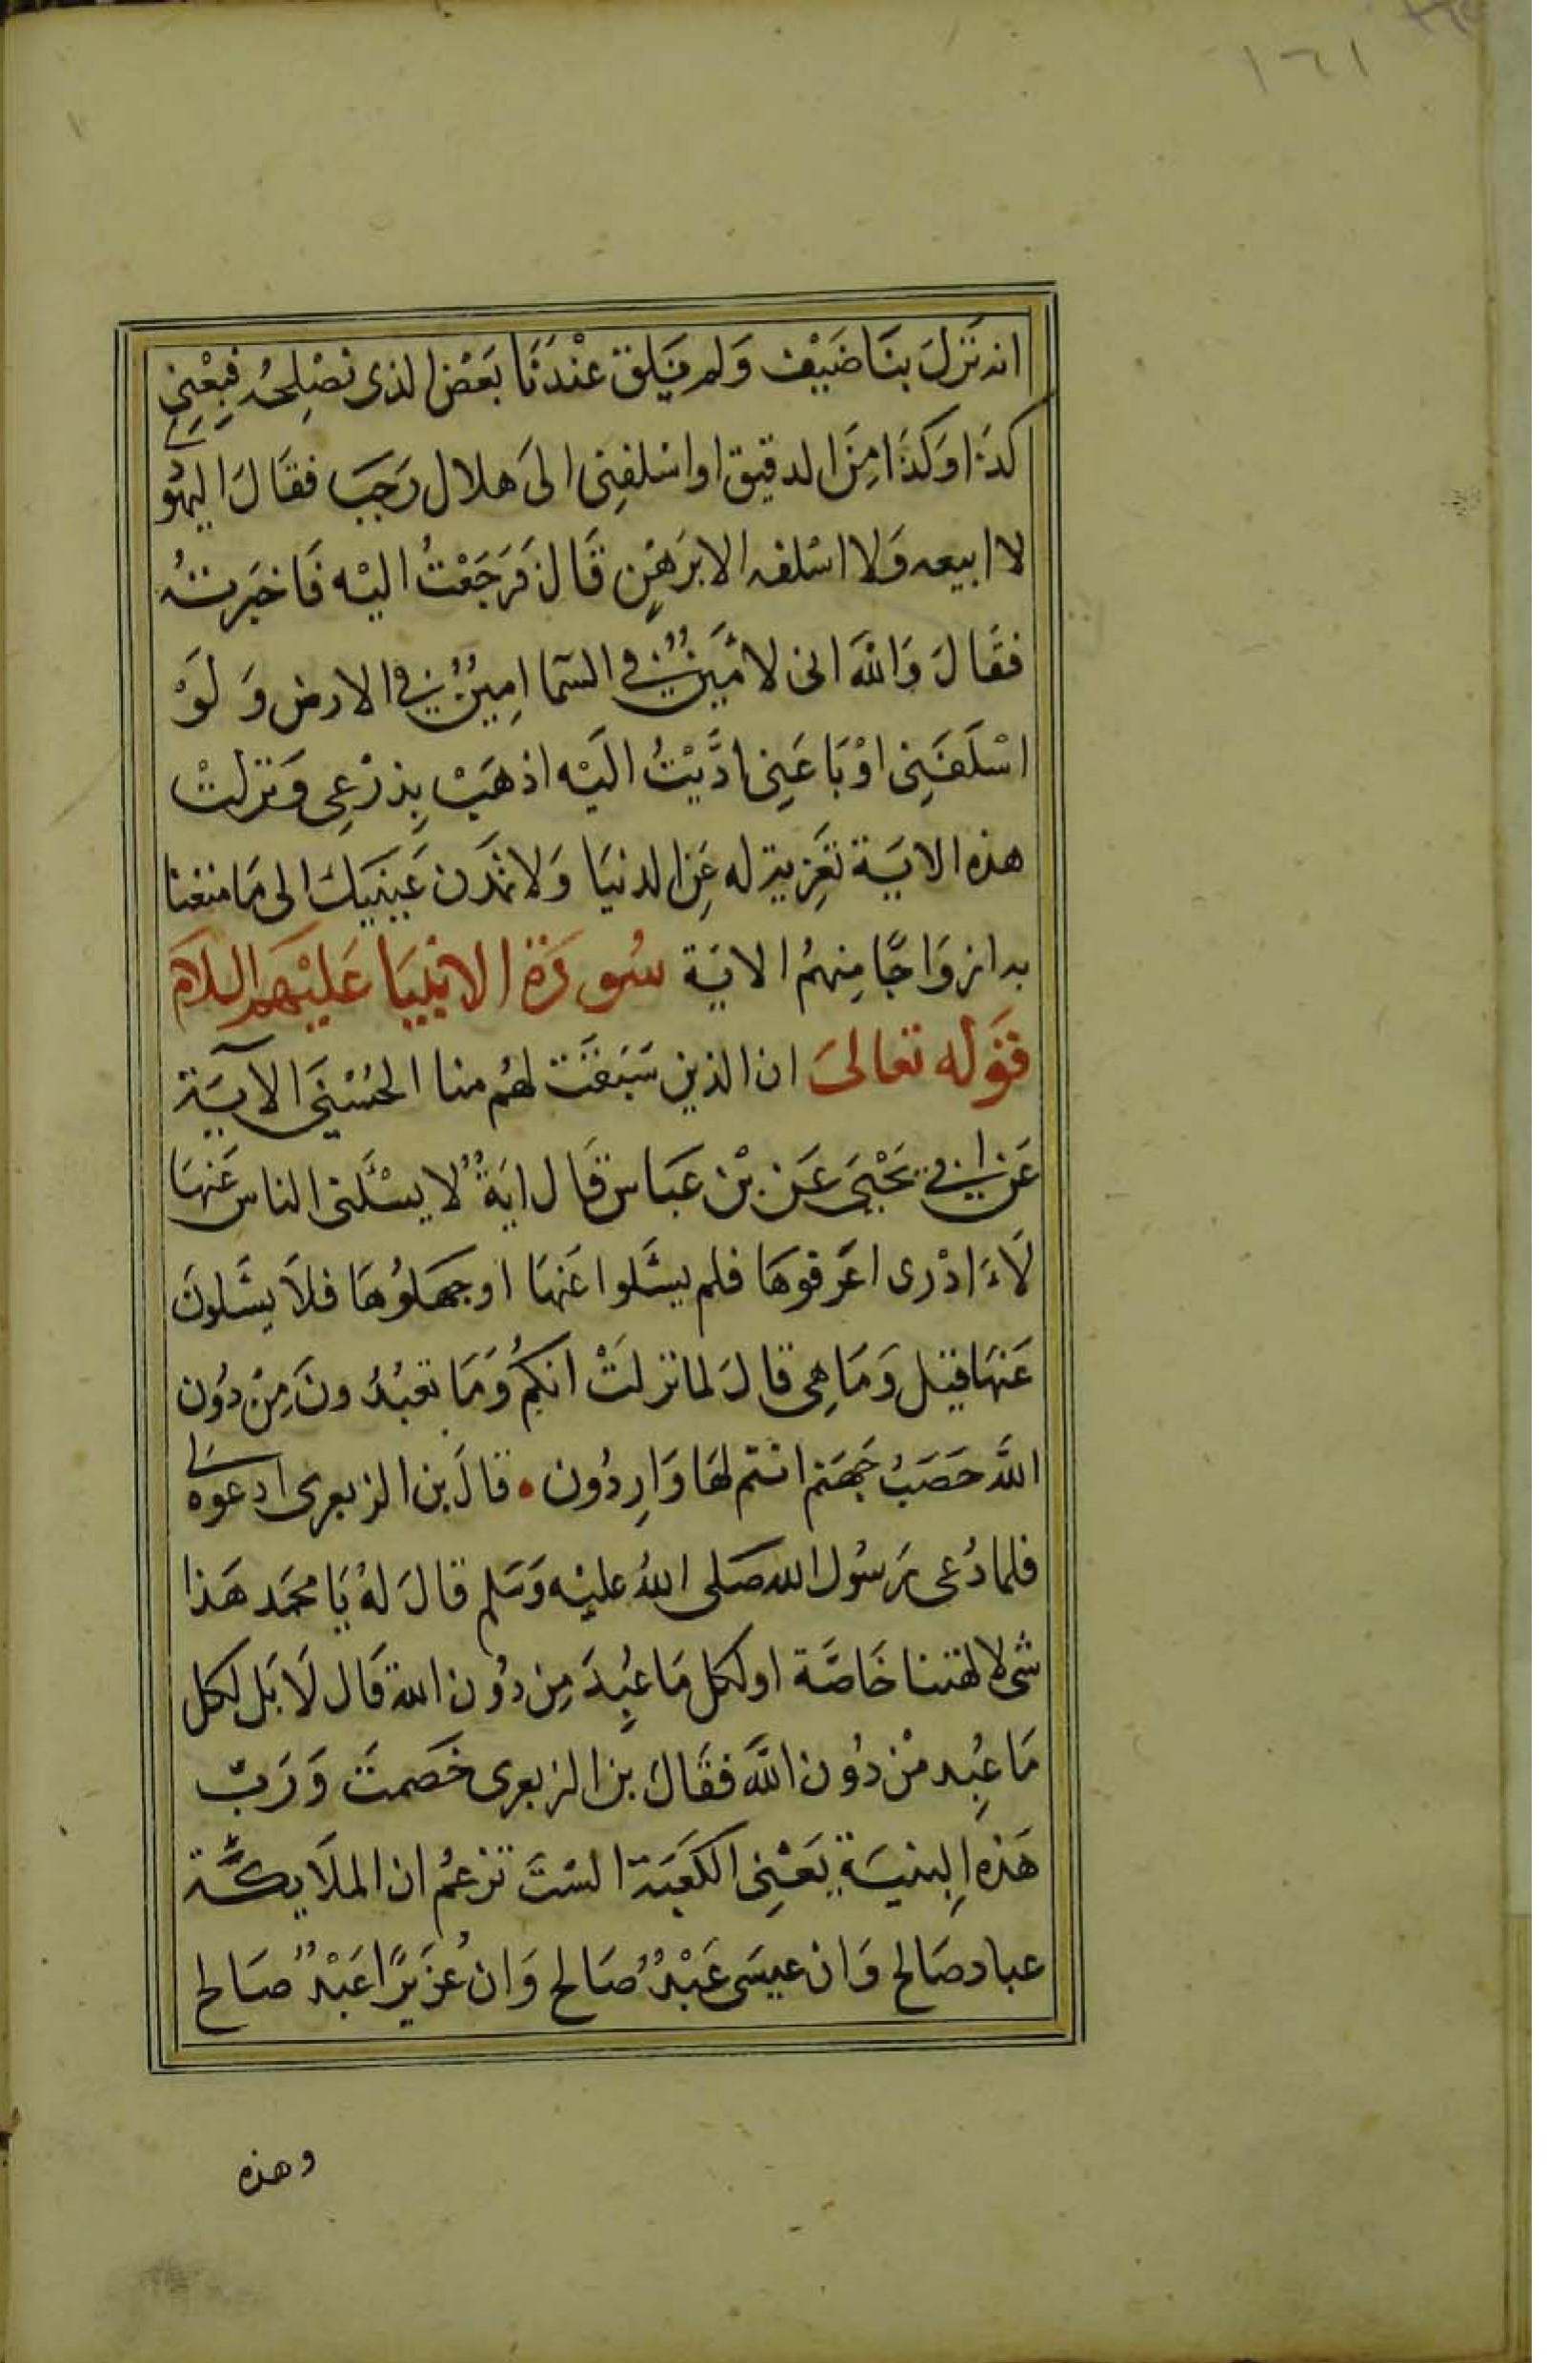 ١٦١
انه نَزلَ بنَا ضَيْف وَلم يَلق عنْدَنَا بَعْض الذى نصْلِحُه فبِعْنِى
كذَا وَكذَا مِنَ الدقيق او اسْلفنِى الىَ هلال رَجَبَ فقَالَ اليهُودى
لا ابيعه وَلا اسْلفه الا برَهْنٍ قَال فرَجَعْتُ اليْه فَاخبَرتهُ
فقَالَ وَاللهَ انى لامَينٌ فى السَّما امِينٌ فى الارض وَلوْ
اسْلَفَنِى اوْ بَاعَنِى ادَّيْتُ اليَه اذهَبْ بِدِرْعِى وَنزلتْ
هذه الايَة تعَزية له عَنِ الدنيَا وَلا تمَدن عَينَيكَ الى مَا متعنا
به ازوَاجًا مِنهمُ الايَة سُورَة الانبيَا عَليْهم السلام
قوَله تعالىَ ان الذين سَبَقَت لهُم منا الحُسْنىَ الآيَة
عَن ابى يَحْيىَ عَن بْن عَبَاس قَال ايَةٌ لا يسْئَلنى الناس عَنهَا
لَاءَ ادْرى اعَرفوهَا فلم يسْئَلوا عَنهَا اوجهَلوُهَا فلاَ يسْئَلونَ
عَنهَا قيل وَمَا هِى قالَ لما نزلَتْ انكمُ وَمَا تعبُدُونَ مِنْ دوُن
اللهَ حَصَبُ جَهَنم انتم لهَا وَارِدُون • قالَ بن الزبعرى ادعوه لى
فلما دُعى رَسُول الله صَلى اللهُ عليْه وَسَلم قالَ لهُ يَا محمَد هَذا
شى لالهتنا خَاصَّة او لكل مَا عُبِدَ مِن دوُن الله قَال لَا بَل لكل
مَا عُبِد منْ دوُن اللهَ فقَالَ بن الزبعرى خَصمتَ وَرَبّ
هَذه البنيَة يَعْنِى الكعَبَة الستَ تزعمُ ان الملَايكَة
عباد صَالح وَان عيسَى عَبْدٌ صَالح وَان عُزَيرًا عَبْدٌ صَالح
وهذه